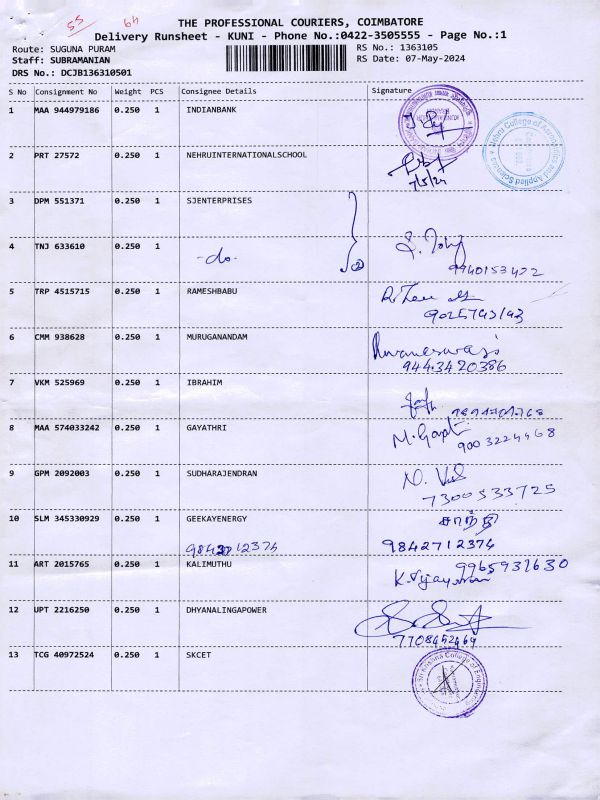 55 64
THE PROFESSIONAL COURIERS, COIMBATORE
Delivery Runsheet - KUNI - Phone No.:0422-3505555 - Page No.:1
Route: SUGUNA PURAM RS No.: 1363105
Staff: SUBRAMANIAN RS Date: 07-May-2024
DRS No.: DCJB136310501
S No Consignment No Weight PCS Consignee Details Signature
1 MAA 944979186 0.250 1 INDIANBANK
2 PRT 27572 0.250 1 NEHRUINTERNATIONALSCHOOL
7/5/24
Nehru College of Aeronautics and Applied Sciences
3 DPM 551371 0.250 1 SJENTERPRISES
4 TNJ 633610 0.250 1
-do- 2
9940153422
5 TRP 4515715 0.250 1 RAMESHBABU
6 CMM 938628 0.250 1 MURUGANANDAM
9443420386
7 VKM 525969 0.250 1 IBRAHIM
8 MAA 574033242 0.250 1 GAYATHRI M. Gayatri
9003224468
9 GPM 2092003 0.250 1 SUDHARAJENDRAN
7300533725
10 SLM 345330929 0.250 1 GEEKAYENERGY சாந்தி
9842712374 9842712374
11 ART 2015765 0.250 1 KALIMUTHU 9965931630
K. Vijay
12 UPT 2216250 0.250 1 DHYANALINGAPOWER
7708452469
13 TCG 40972524 0.250 1 SKCET
Sri Krishna College of Engineering